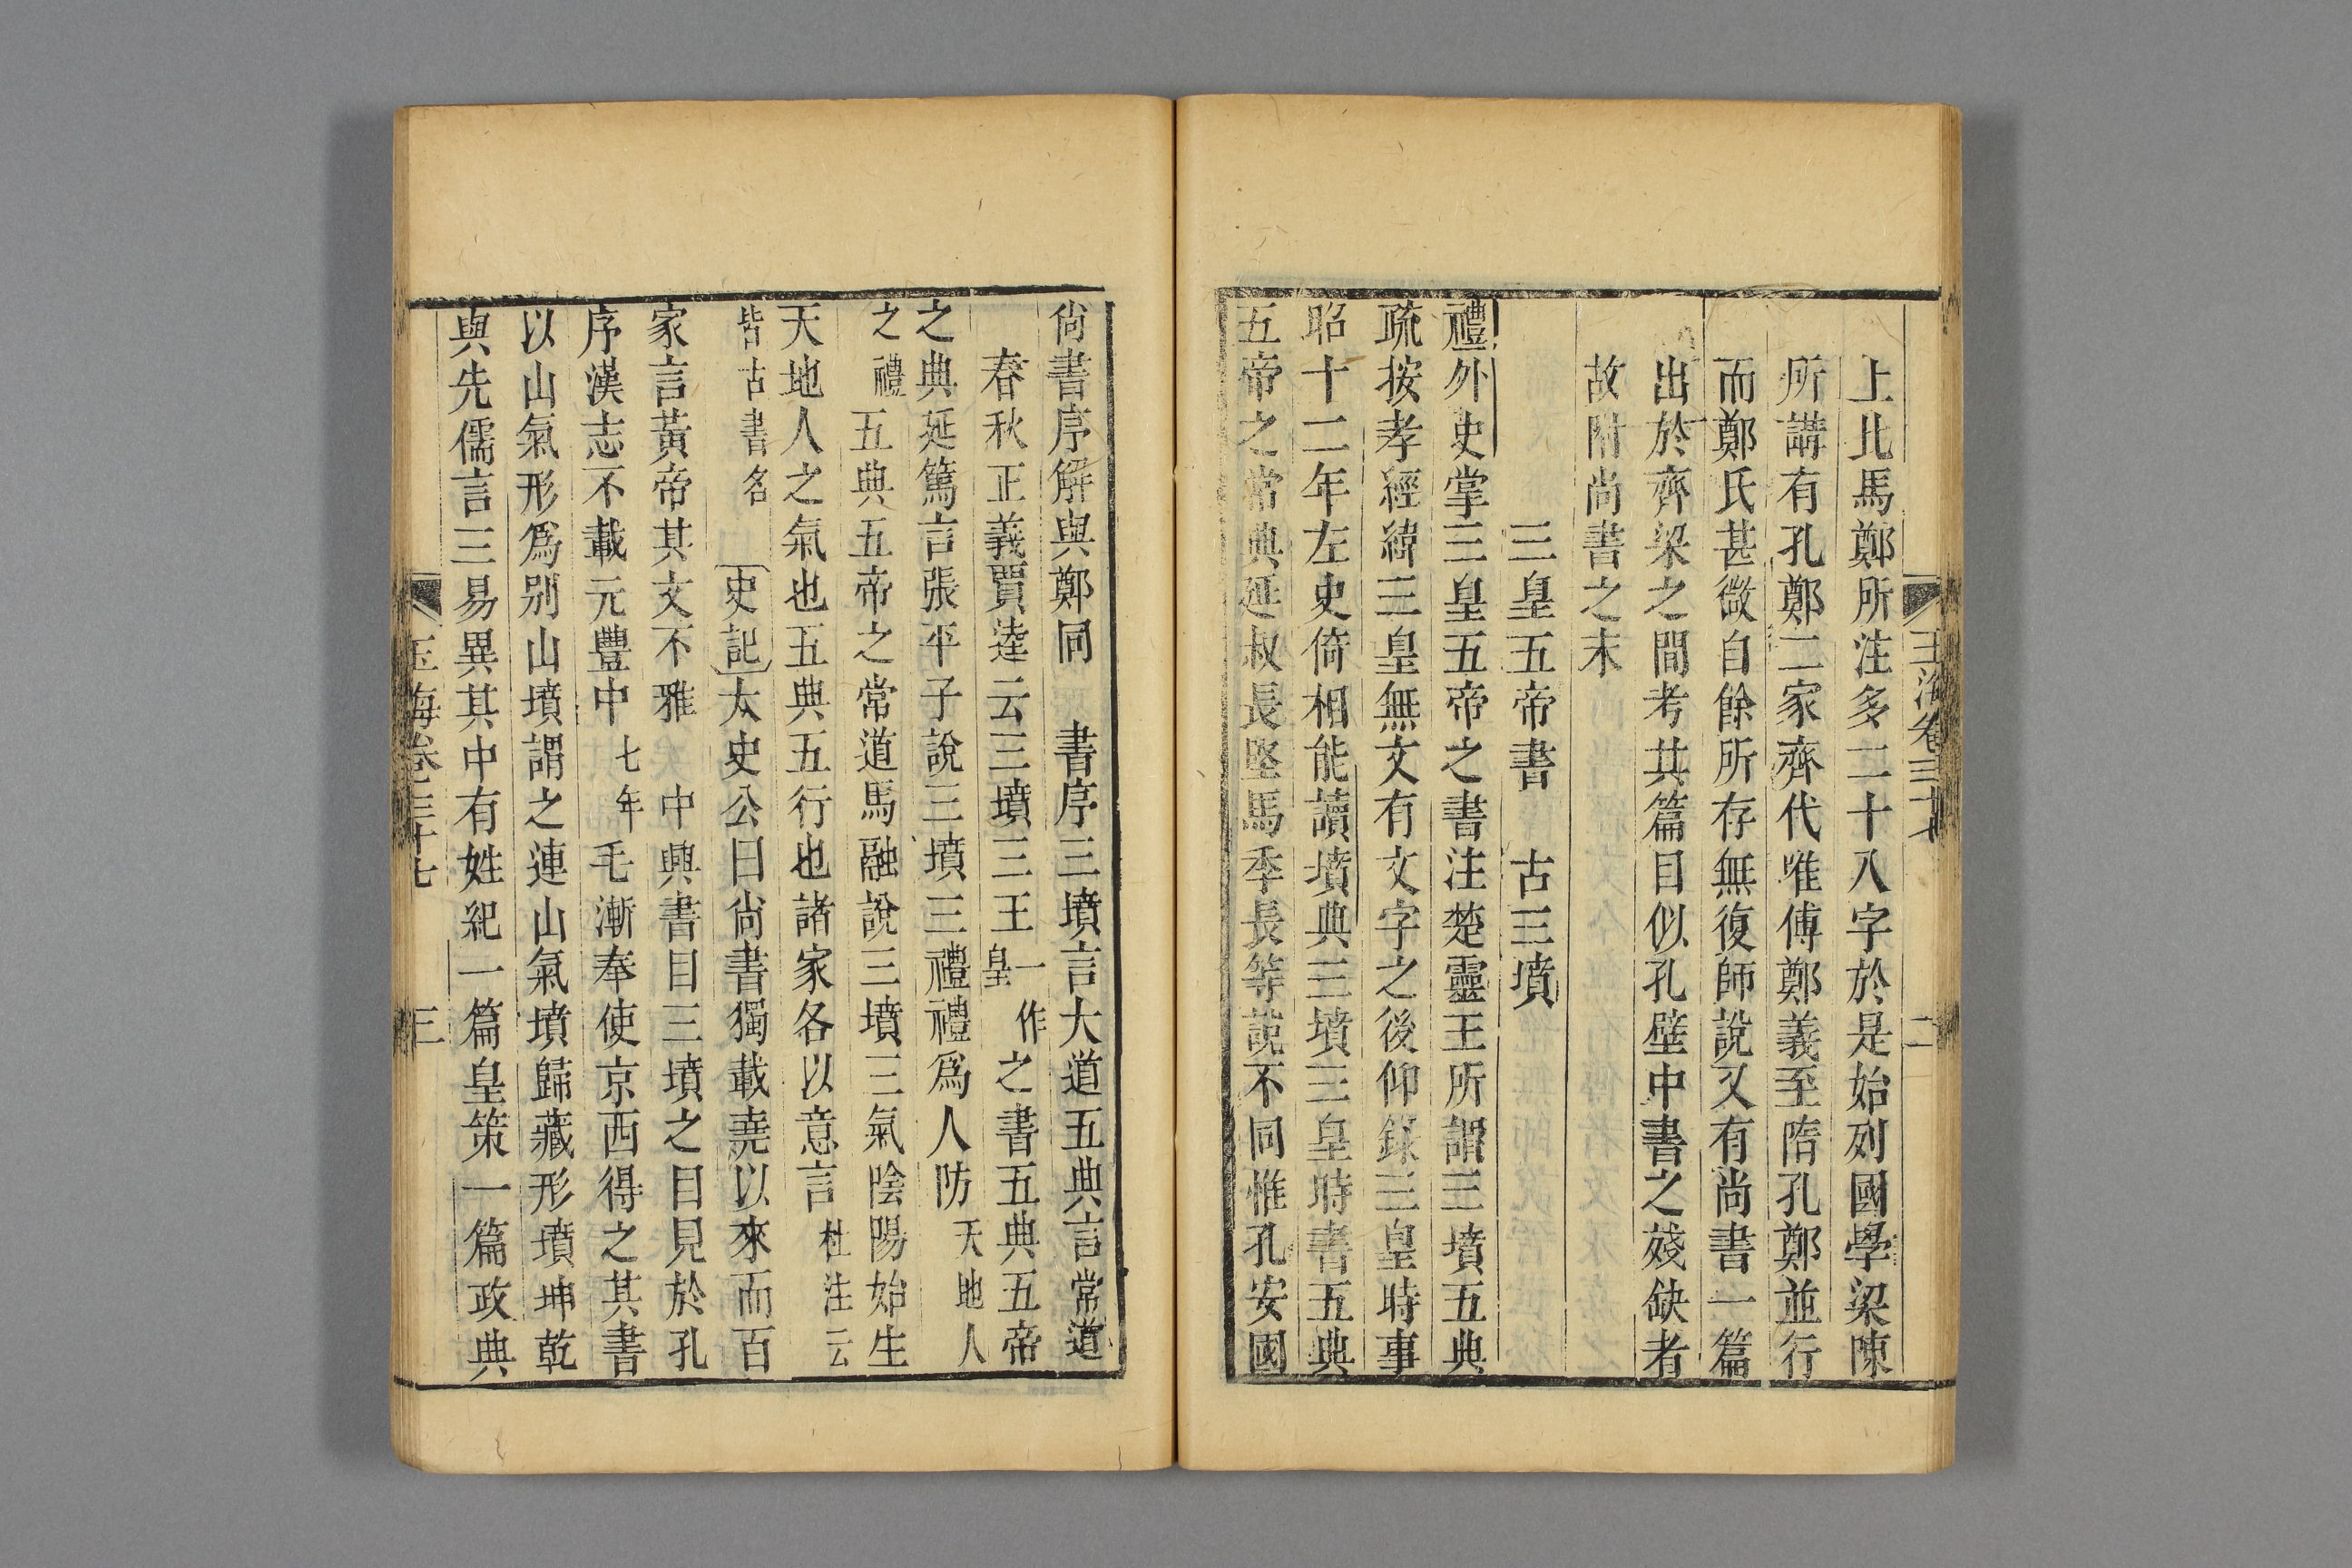 玉海卷三十七
二
上北馬鄭所注多二十八字於是始列國學梁陳
所講有孔鄭二家齊代唯傳鄭義至隋孔鄭並行
而鄭氏甚微自餘所存無復師說又有尚書一篇
出於齊梁之間考其篇目似孔壁中書之殘缺者
故附尚書之末
三皇五帝書 古三墳
禮外史掌三皇五帝之書注楚靈王所謂三墳五典
疏按孝經緯三皇無文有文字之後仰錄三皇時事
昭十二年左史倚相能讀墳典三墳三皇時書五典
五帝之常典延叔長堅馬季長等說不同惟孔安國
尚書序解與鄭同 書序三墳言大道五典言常道
春秋正義賈逵云三墳三王一作皇之書五典五帝
之典延篤言張平子說三墳三禮禮爲人防天地人
之禮五典五帝之常道馬融說三墳三氣陰陽始生
天地人之氣也五典五行也諸家各以意言杜注云
皆古書名 史記太史公曰尚書獨載堯以來而百
家言黃帝其文不雅 中興書目三墳之目見於孔
序漢志不載元豐中七年毛漸奉使京西得之其書
以山氣形爲別山墳謂之連山氣墳歸藏形墳坤乾
與先儒言三易異其中有姓紀一篇皇策一篇政典
玉海卷三十七
三